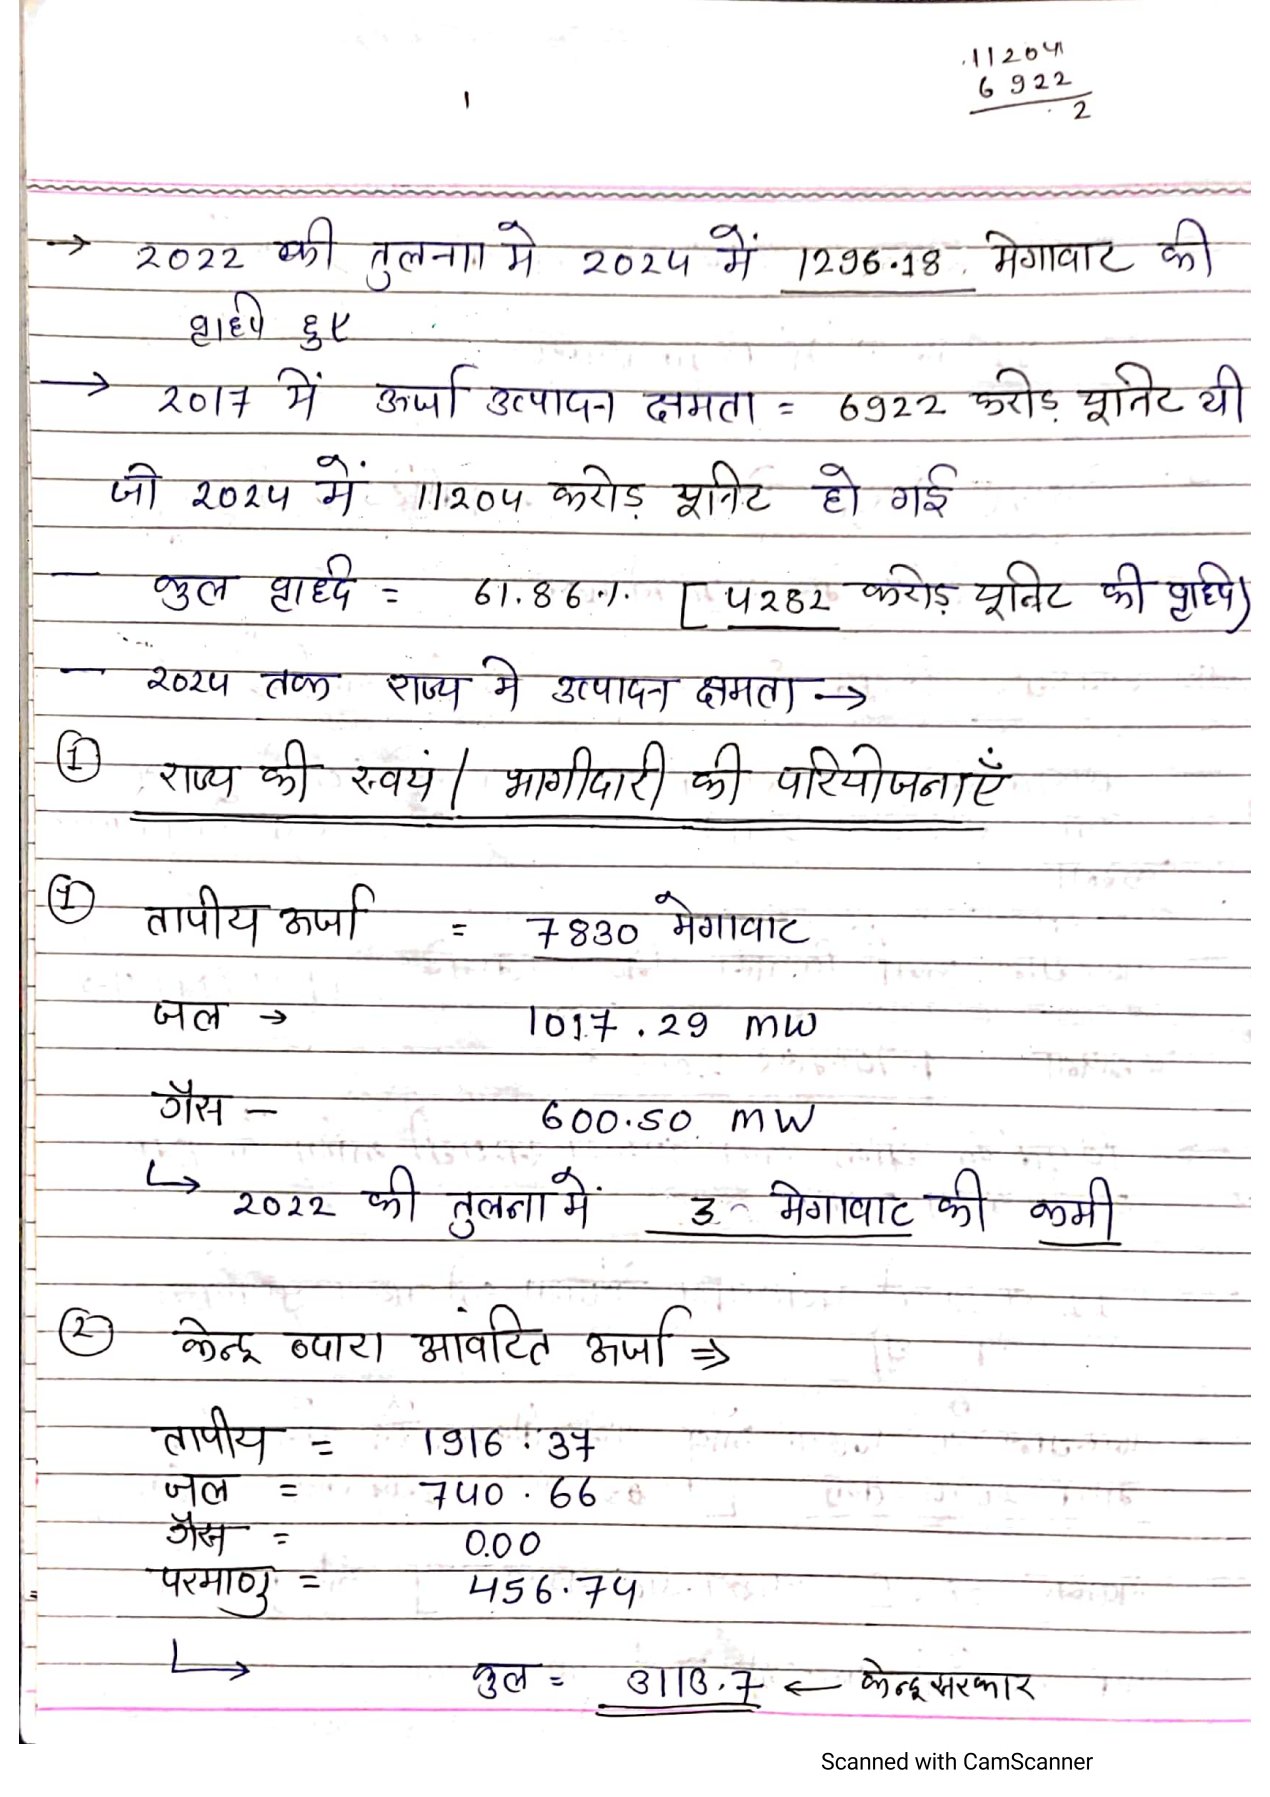 11204
6922
2
1
→ 2022 की तुलना मे 2024 में 1296.18 मेगावाट की
वृद्धि हुए
→ 2017 में ऊर्जा उत्पादन क्षमता = 6922 करोड़ यूनिट थी
जो 2024 में 11204 करोड़ यूनिट हो गई
— कुल वृद्धि = 61.86%. [4282 करोड़ यूनिट की वृद्धि)
— 2024 तक राज्य मे उत्पादन क्षमता →
① राज्य की स्वयं / भागीदारी की परियोजनाएँ
① तापीय ऊर्जा = 7830 मेगावाट
जल → 1017.29 MW
गैस – 600.50 MW
↳ 2022 की तुलना में 3 मेगावाट की कमी
② केन्द्र द्वारा आवंटित ऊर्जा ⇒
तापीय = 1916.37
जल = 740.66
गैस = 0.00
परमाणु = 456.74
↳ कुल = 3113.7 ← केन्द्र सरकार
Scanned with CamScanner